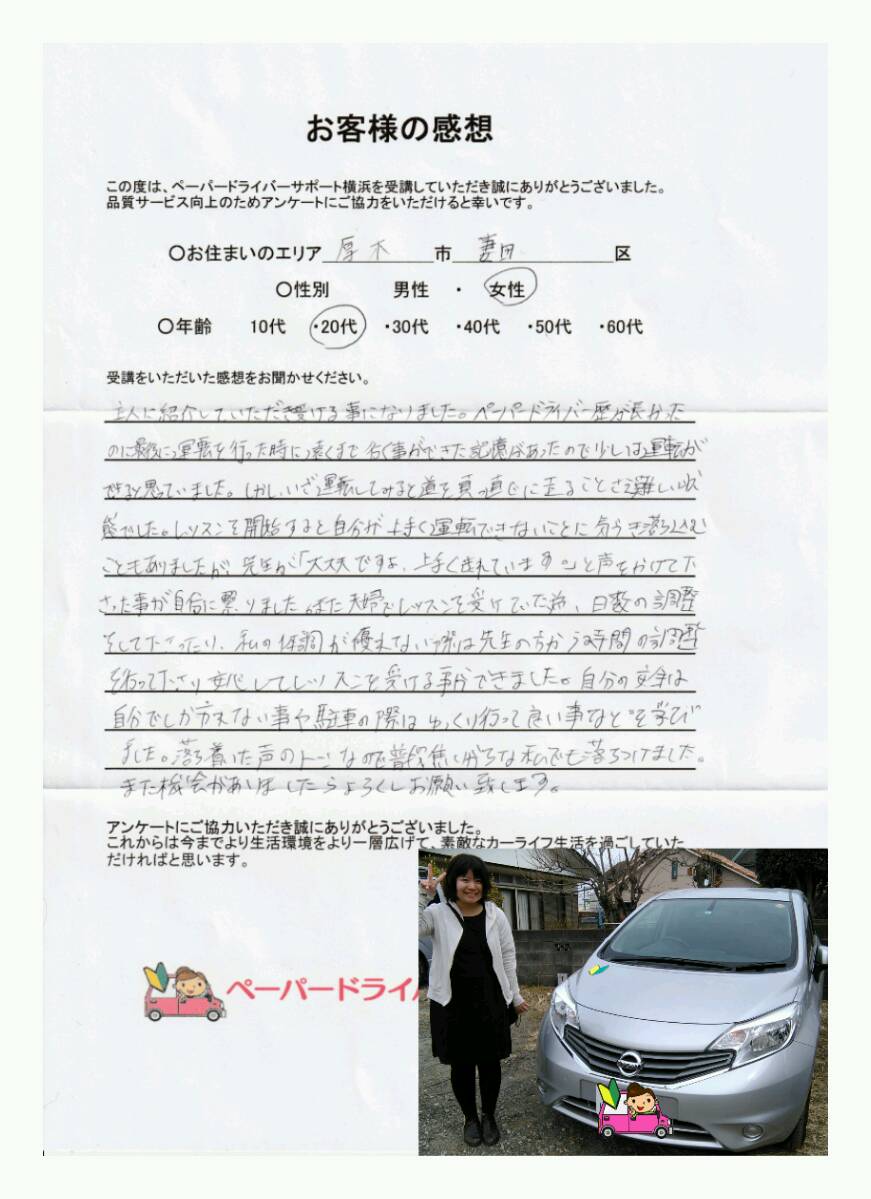 お客様の感想
この度は、ペーパードライバーサポート横浜を受講していただき誠にありがとうございました。
品質サービス向上のためアンケートにご協力をいただけると幸いです。
〇お住まいのエリア 厚木 市 妻田 区
〇性別 男性 ・ 女性
〇年齢 10代 ・20代 ・30代 ・40代 ・50代 ・60代
受講をいただいた感想をお聞かせください。
主人に紹介していただき受ける事になりました。ペーパードライバー歴が長かった
のに最後に運転を行った時に遠くまで行く事ができた記憶があったので少しは運転が
できると思っていました。しかしいざ運転してみると道を真っ直ぐに走ることさえ難しい状
態でした。レッスンを開始すると自分が上手く運転できないことに気づき落ち込む
こともありましたが、先生が「大丈夫ですよ、上手く走れています。」と声をかけて下
さった事が自信に繋りました。また夫婦でレッスンを受けていた為、日数の調整
をして下さったり、私の体調が優れない際は先生の方から時間の調整
を行って下さり安心してレッスンを受ける事ができました。自分の安全は
自分でしか守れない事や駐車の際はゆっくり行って良い事などを学び
ました。落ち着いた声のトーンなので普段焦りがちな私でも落ちつけました。
また機会がありましたらよろしくお願い致します。
アンケートにご協力いただき誠にありがとうございました。
これからは今までより生活環境をより一層広げて、素敵なカーライフ生活を過ごしていた
だければと思います。
ペーパードライ